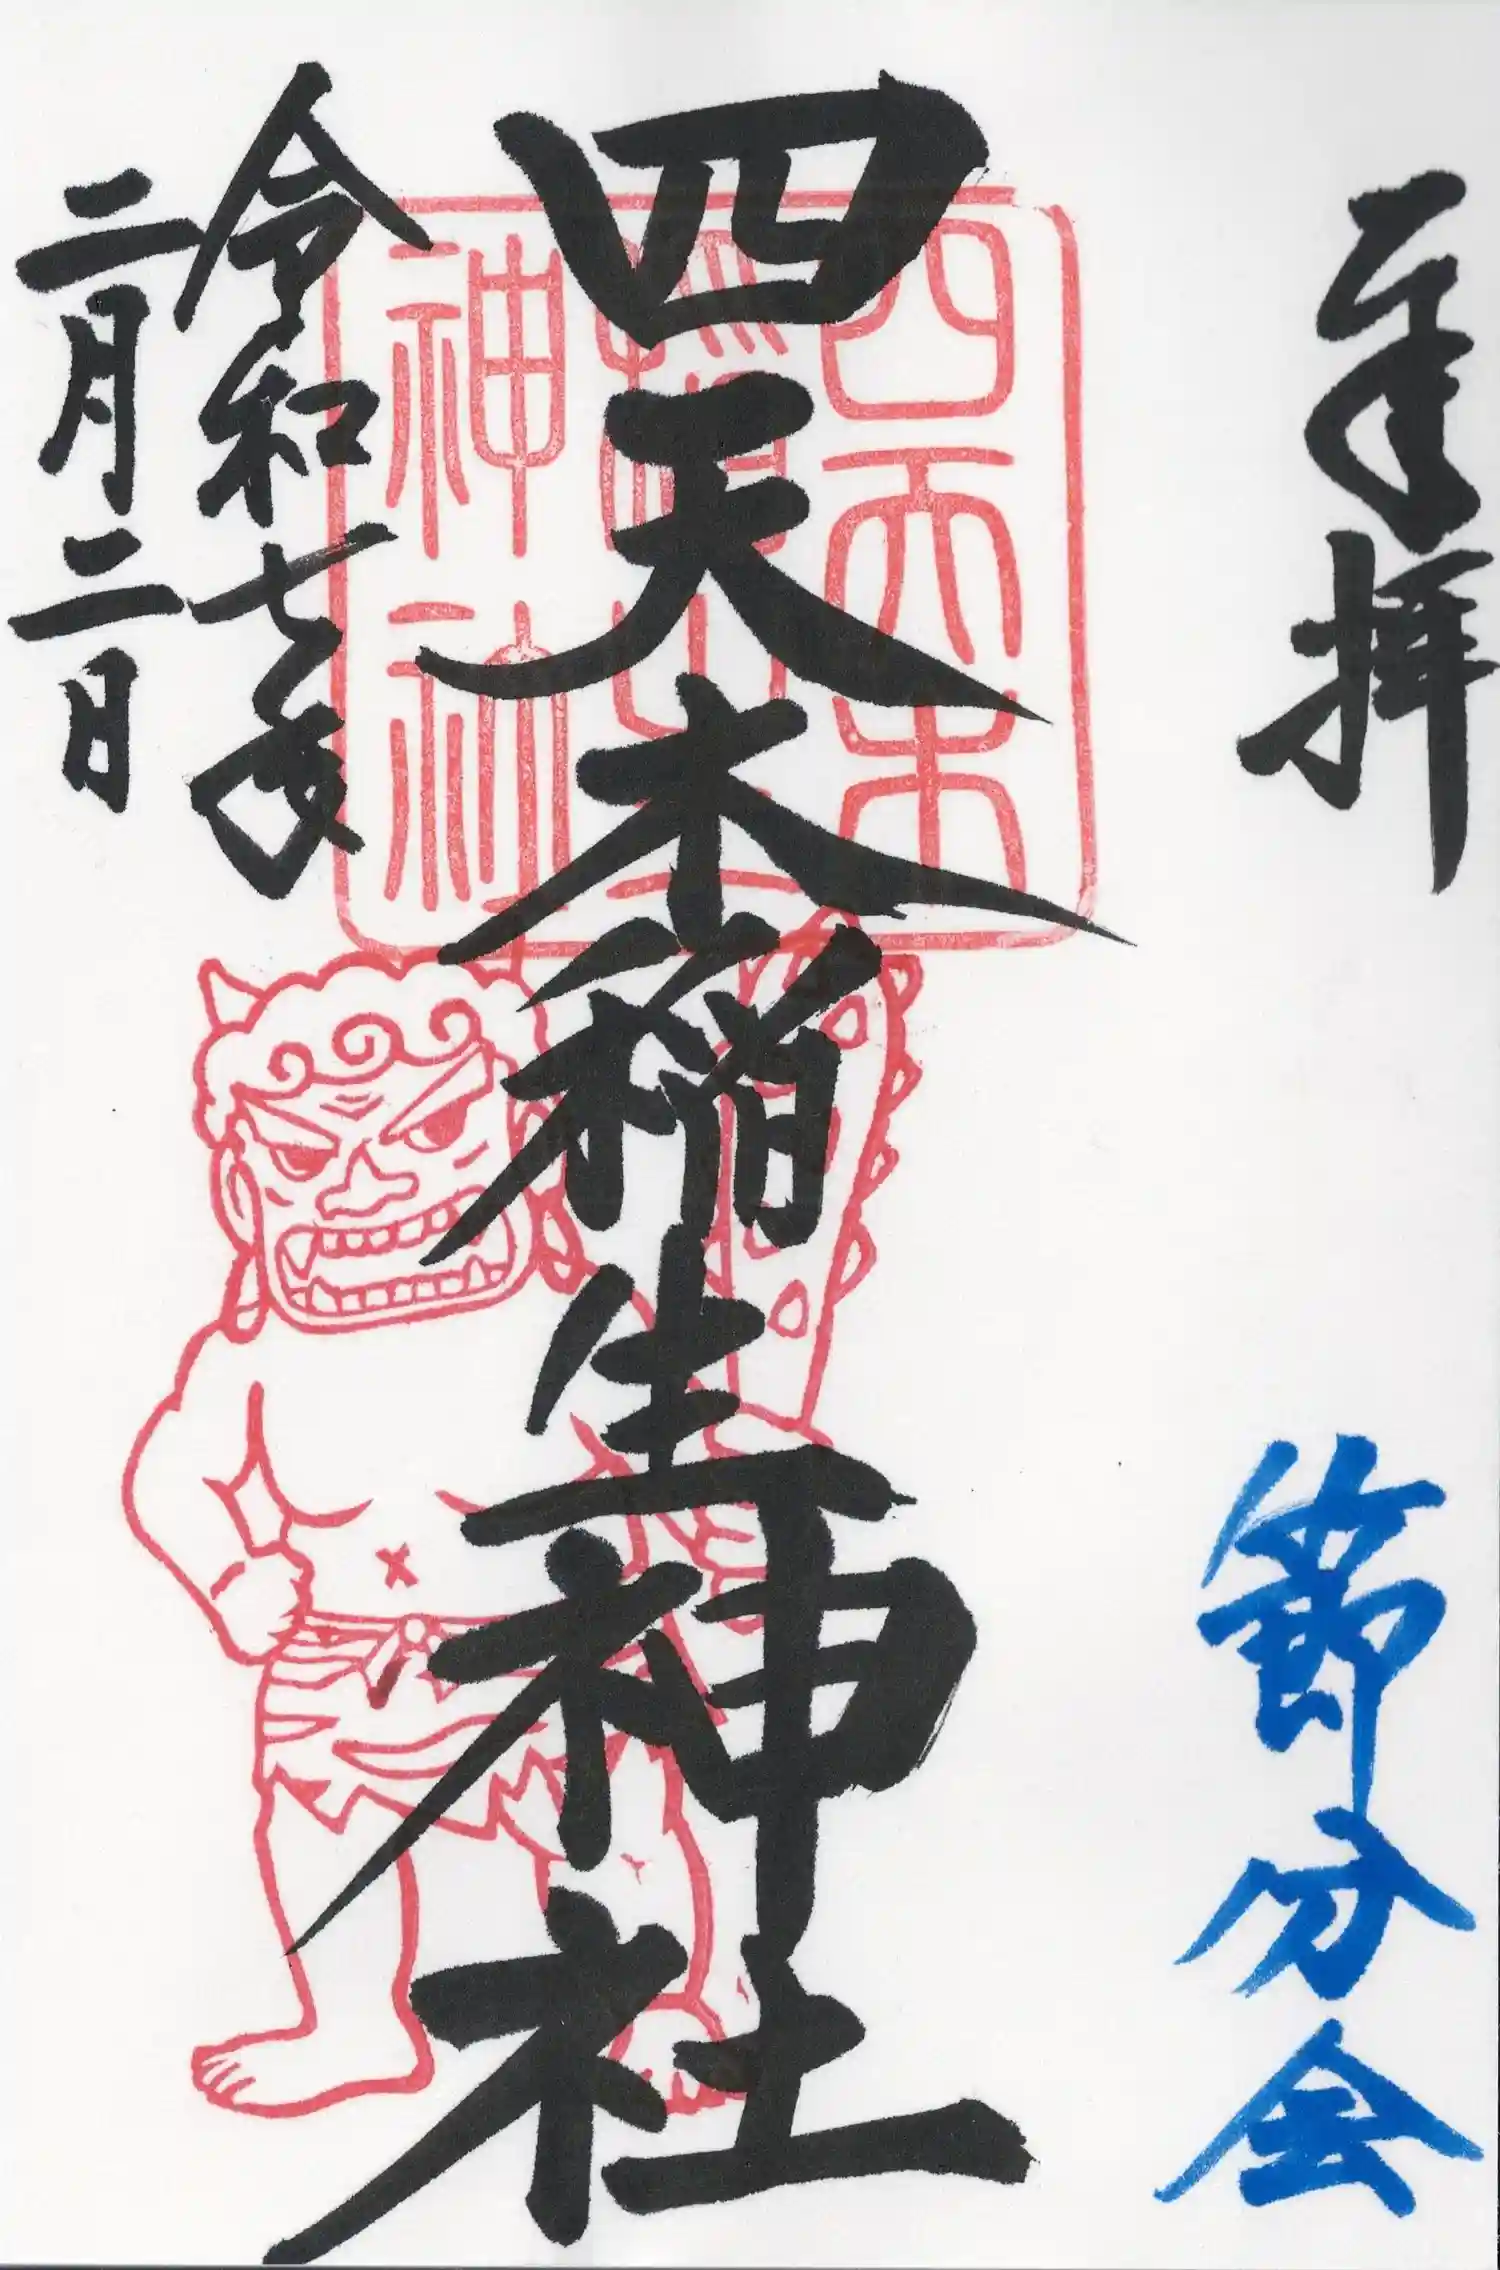 奉拝
節分会
四天木稲生神社
令和七年
二月二日
四天木
神社